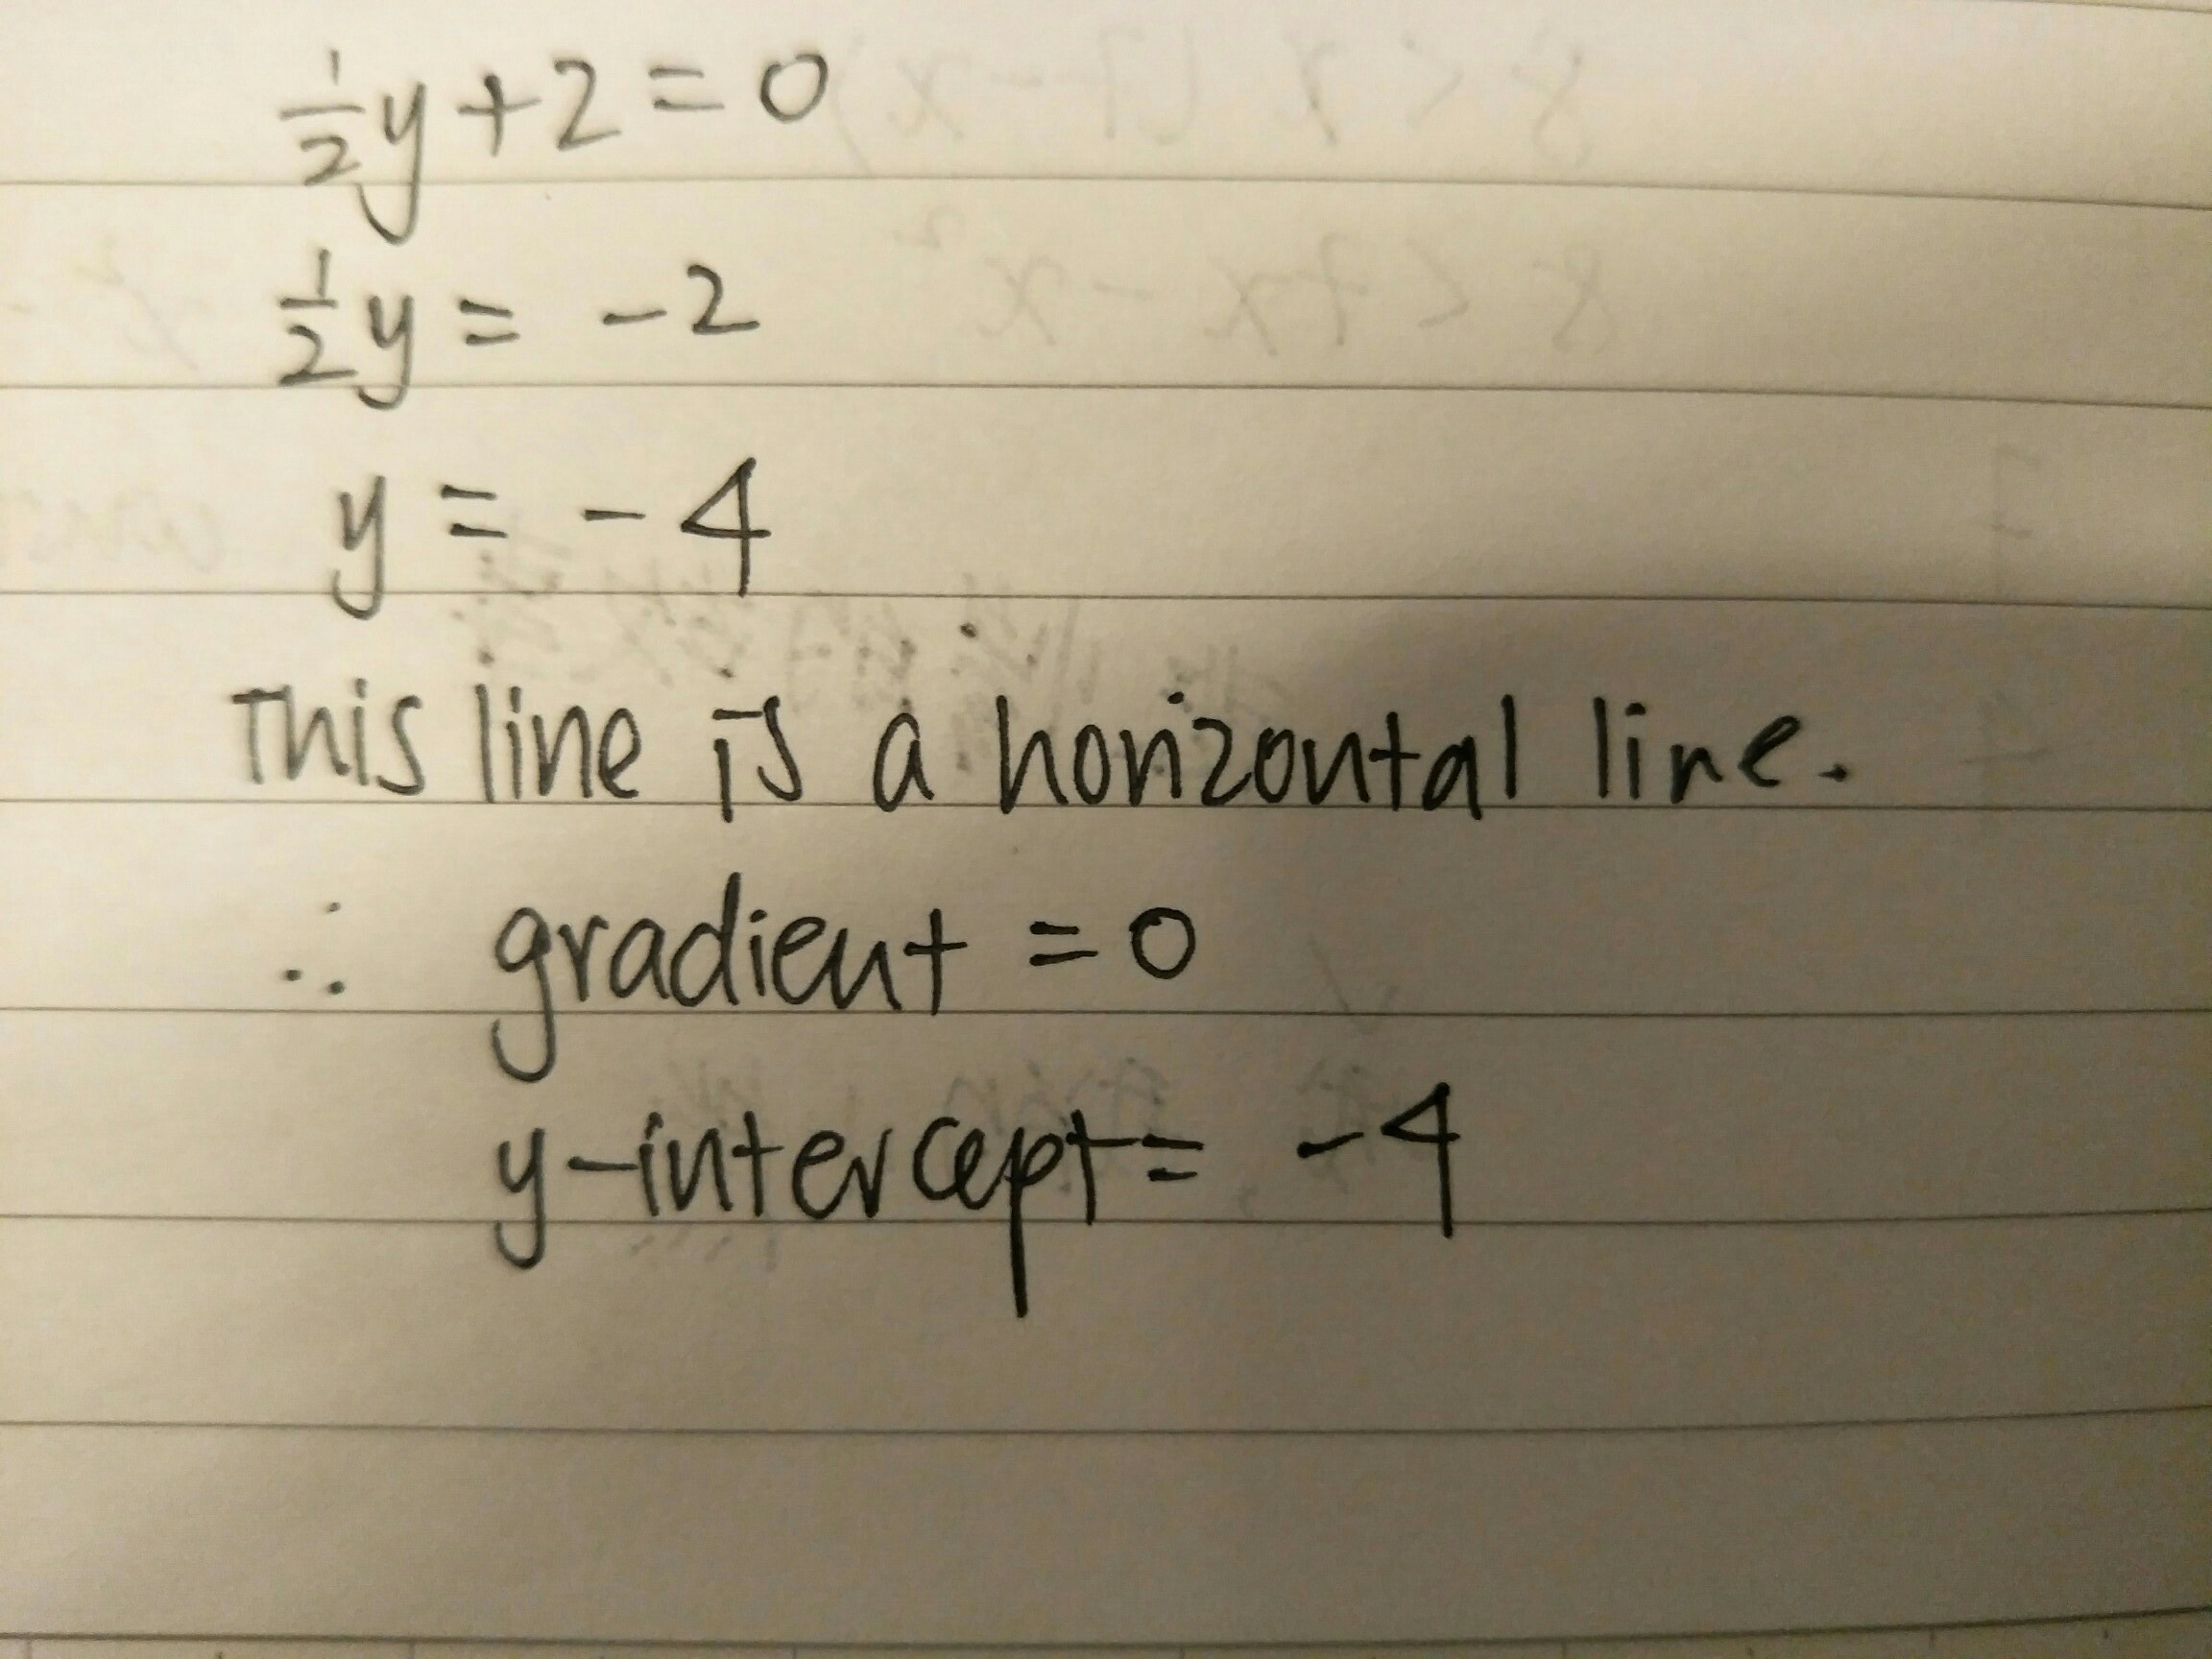 ½y + 2 = 0
½y = -2
y = -4
This line is a horizontal line.
∴ gradient = 0
y-intercept = -4